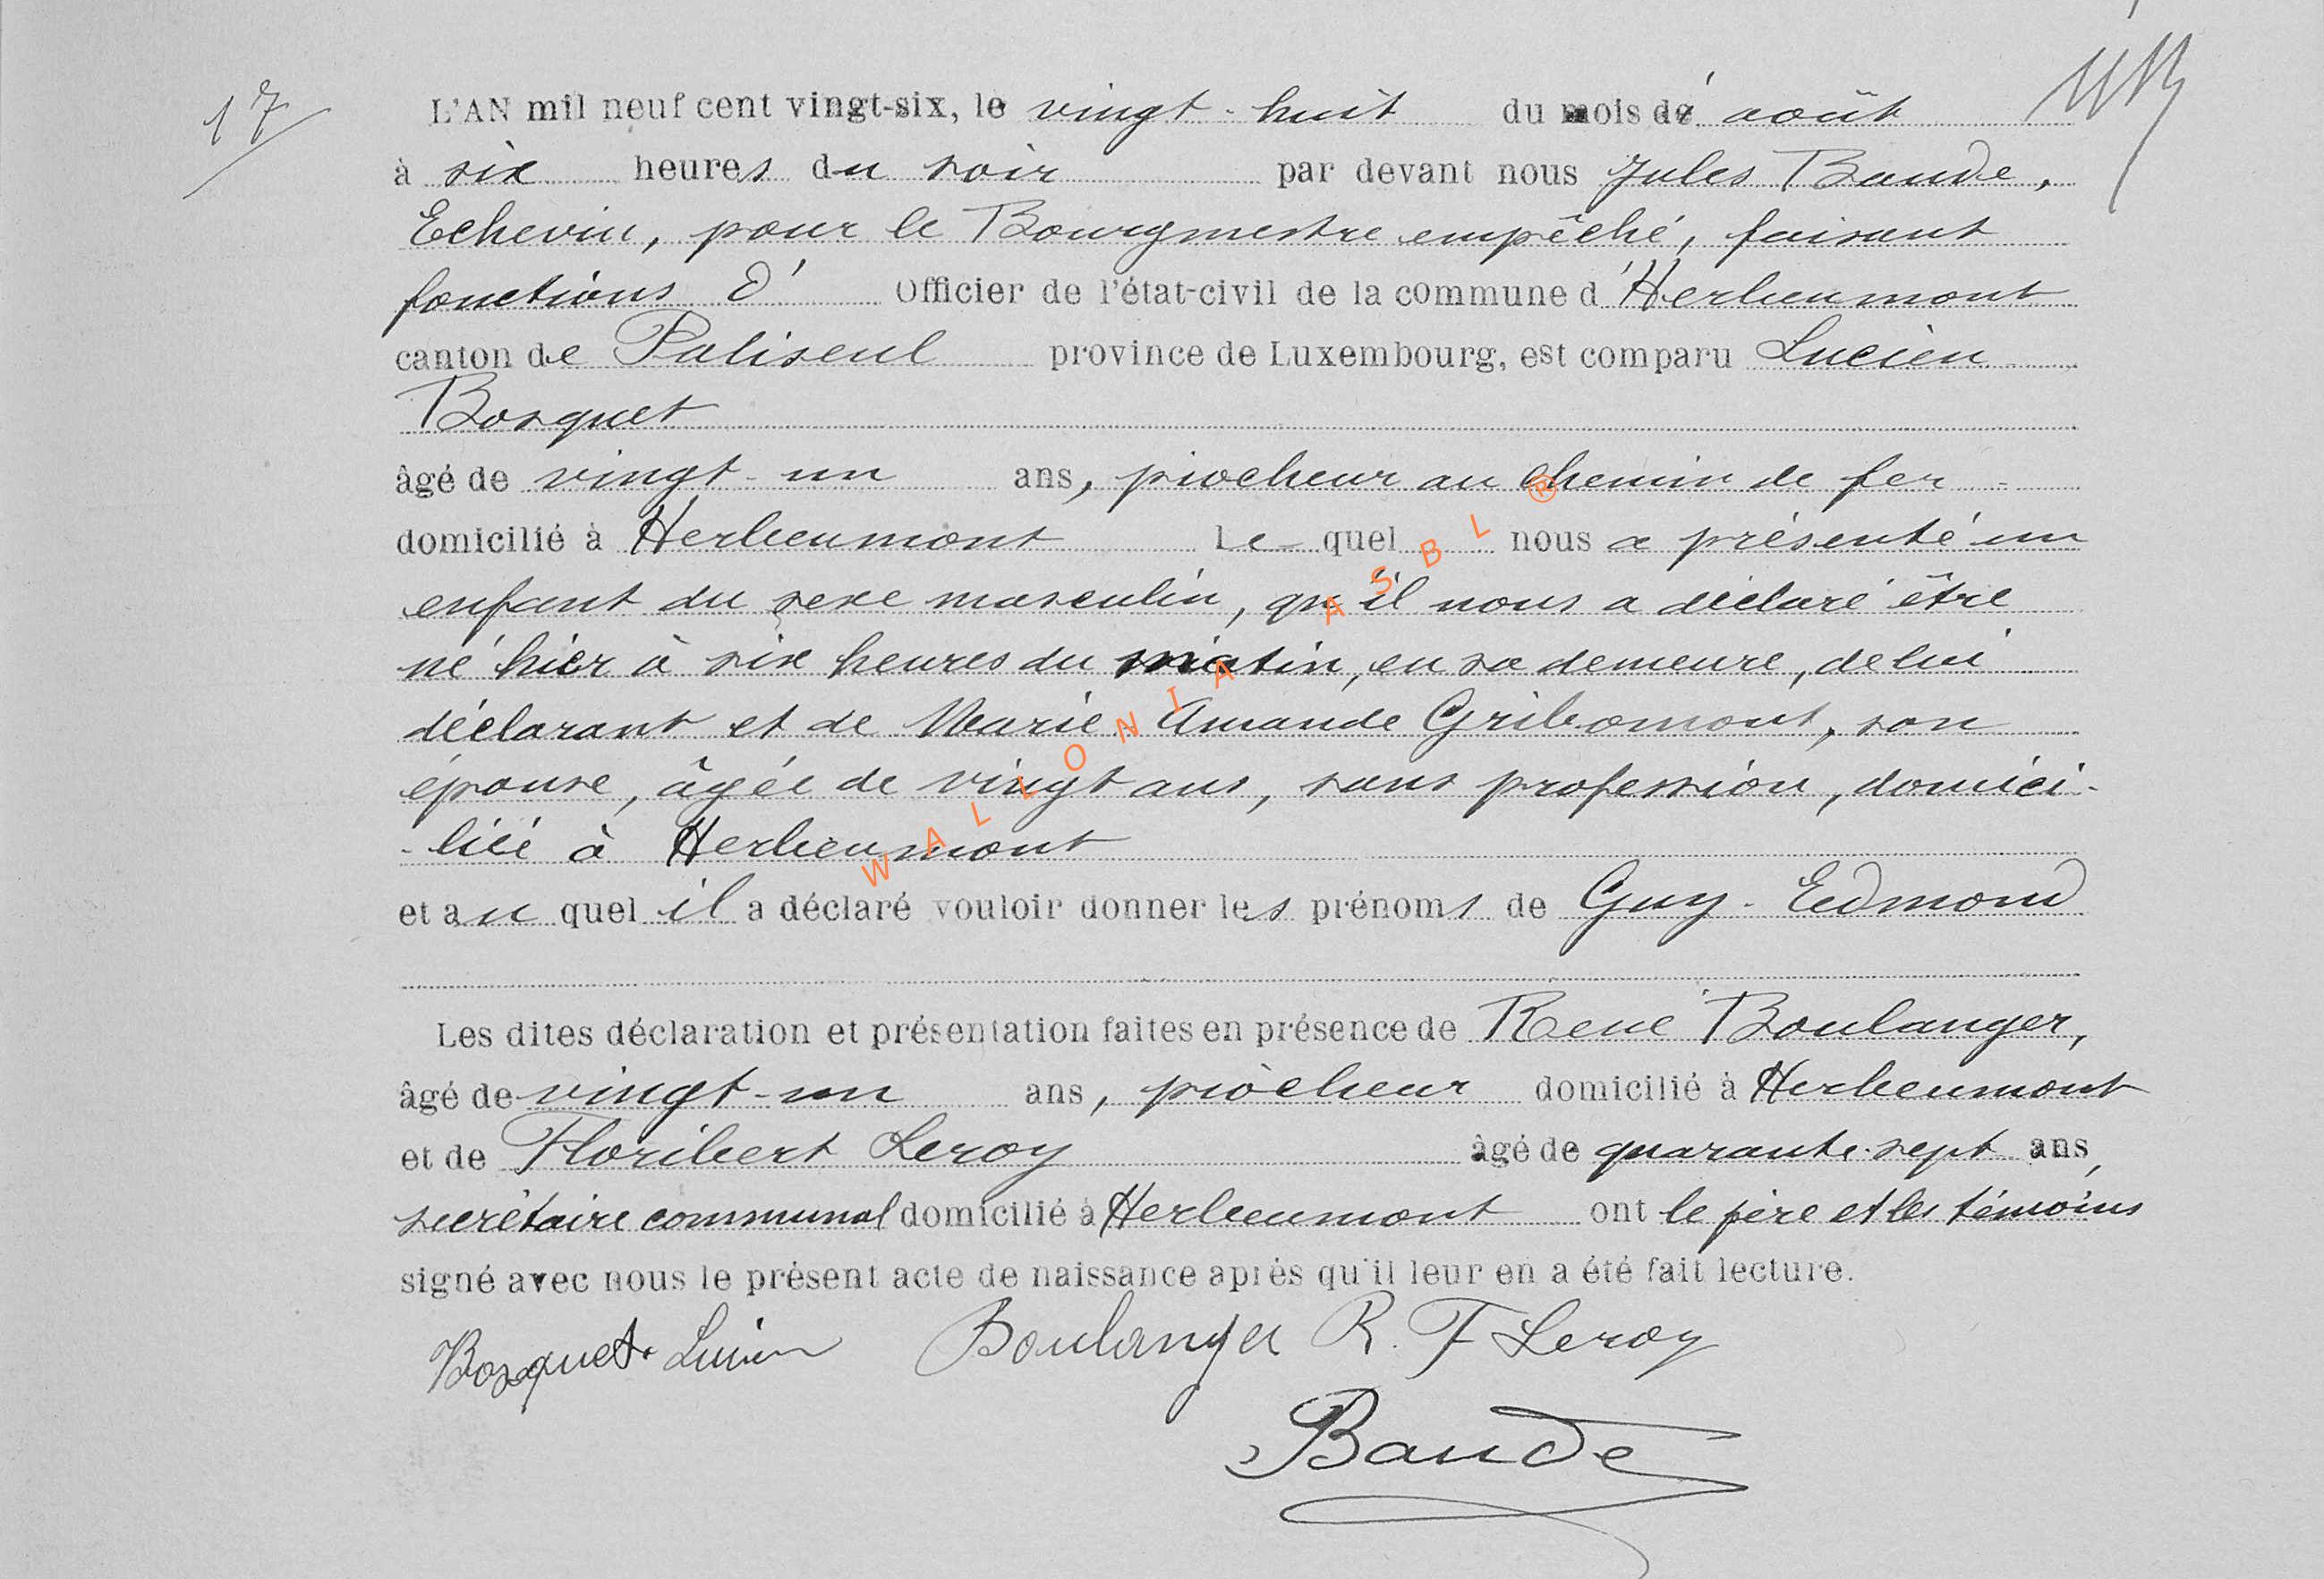 17
L'AN mil neuf cent vingt-six, le vingt-huit du mois de août
à six heures du soir par devant nous Jules Baude,
Echevin, pour le Bourgmestre empêché, faisant
fonctions d' Officier de l'état-civil de la commune d'Herbeumont
canton de Paliseul province de Luxembourg, est comparu Lucien
Bosquet
âgé de vingt-un ans, piocheur au chemin de fer
domicilié à Herbeumont Lequel nous a présenté un
enfant du sexe masculin, qu'il nous a déclaré être
né hier à six heures du matin, en sa demeure, de lui
déclarant et de Marie Amande Gribomont, son
épouse, âgée de vingt ans, sans profession, domici-
-liée à Herbeumont
et auquel il a déclaré vouloir donner les prénoms de Guy-Edmond
Les dites déclaration et présentation faites en présence de René Boulanger,
âgé de vingt-un ans, piocheur domicilié à Herbeumont
et de Floribert Leroy âgé de quarante-sept ans,
secrétaire communal domicilié à Herbeumont ont le père et les témoins
signé avec nous le présent acte de naissance après qu'il leur en a été fait lecture.
Bosquet Lucien Boulanger R. F Leroy
Baude
WALLONIA ASBL ®